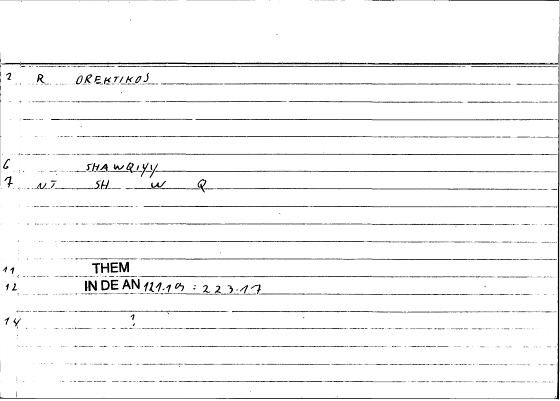 2 R OREKTIKOS
6 SHAWQIYY
7 NT SH W Q
11 THEM
12 IN DE AN 121.109 : 223.17
14 ?